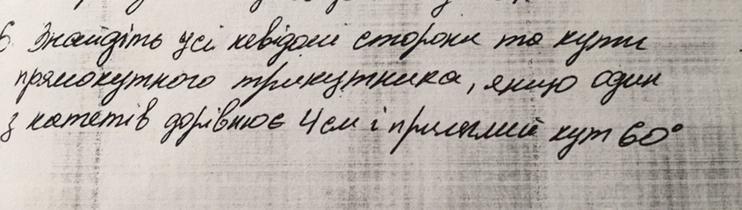 6. Знайдіть усі невідомі сторони та кути
прямокутного трикутника, якщо один
з катетів дорівнює 4 см і прилеглий кут 60°